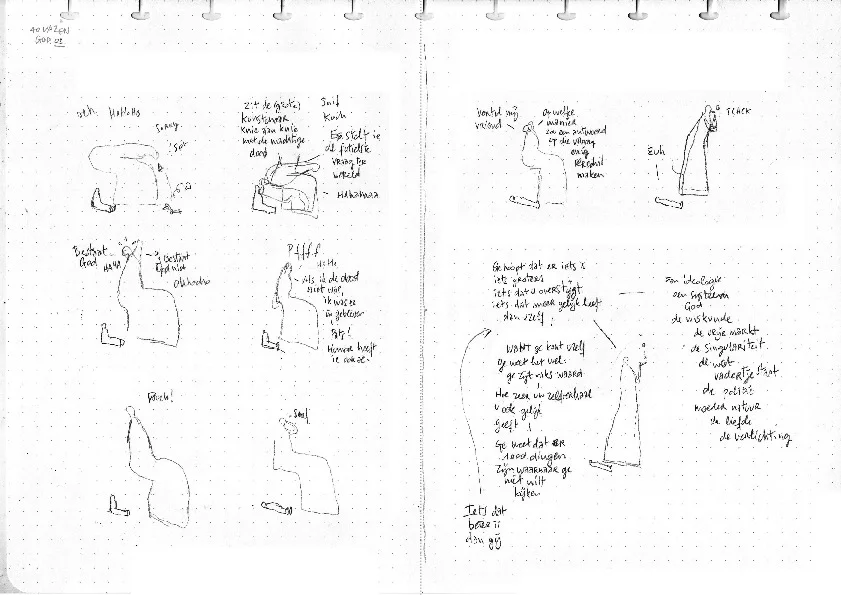 HAHAHA
Sorry
Zit de grootste
kunstenaar
knie aan knie
met de machtige
dood
Snif
Kuch
En stelt ie
de futielste
vraag ter
wereld
HAHAHAA
Bestaat
God
HAHA
Bestaat
God niet
Ohhoaho
Pffff
HaHa
Als ik de dood
niet was,
ik was er
in gebleven
Humor heeft
ie ook al.
Snif
Vertel mij
vriend
Op welke
manier
zou een antwoord
op die vraag
enig
verschil
maken
Euh
Ge hoopt dat er iets is
iets groters
iets dat u overstijgt
iets dat meer gelijk heeft
dan uzelf
Want ge kent uzelf
Ge weet het wel
ge zijt niks waard
Hoe zeer uw zelfverhaal
u ook gelijk
geeft
Ge weet dat er
dingen
zijn waarnaar ge
niet wilt
kijken
Iets dat
beter is
dan gij
Een ideologie
een systeem
God
de wiskunde
de vrije markt
de singulariteit
de wet
vadertje staat
de politie
moeder natuur
de liefde
de verlichting